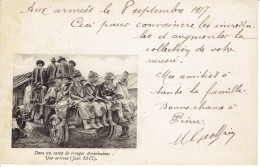 Aux armées le 8 septembre 1917
Ceci pour convaincre les incrédu-
les et augmenter la
collection de votre
musée.
Mes amitiés à
toute la famille.
Bonne chance à
Pierre
Dans un camp de troupes Américaines :
Une arrivée (Juin 1917).